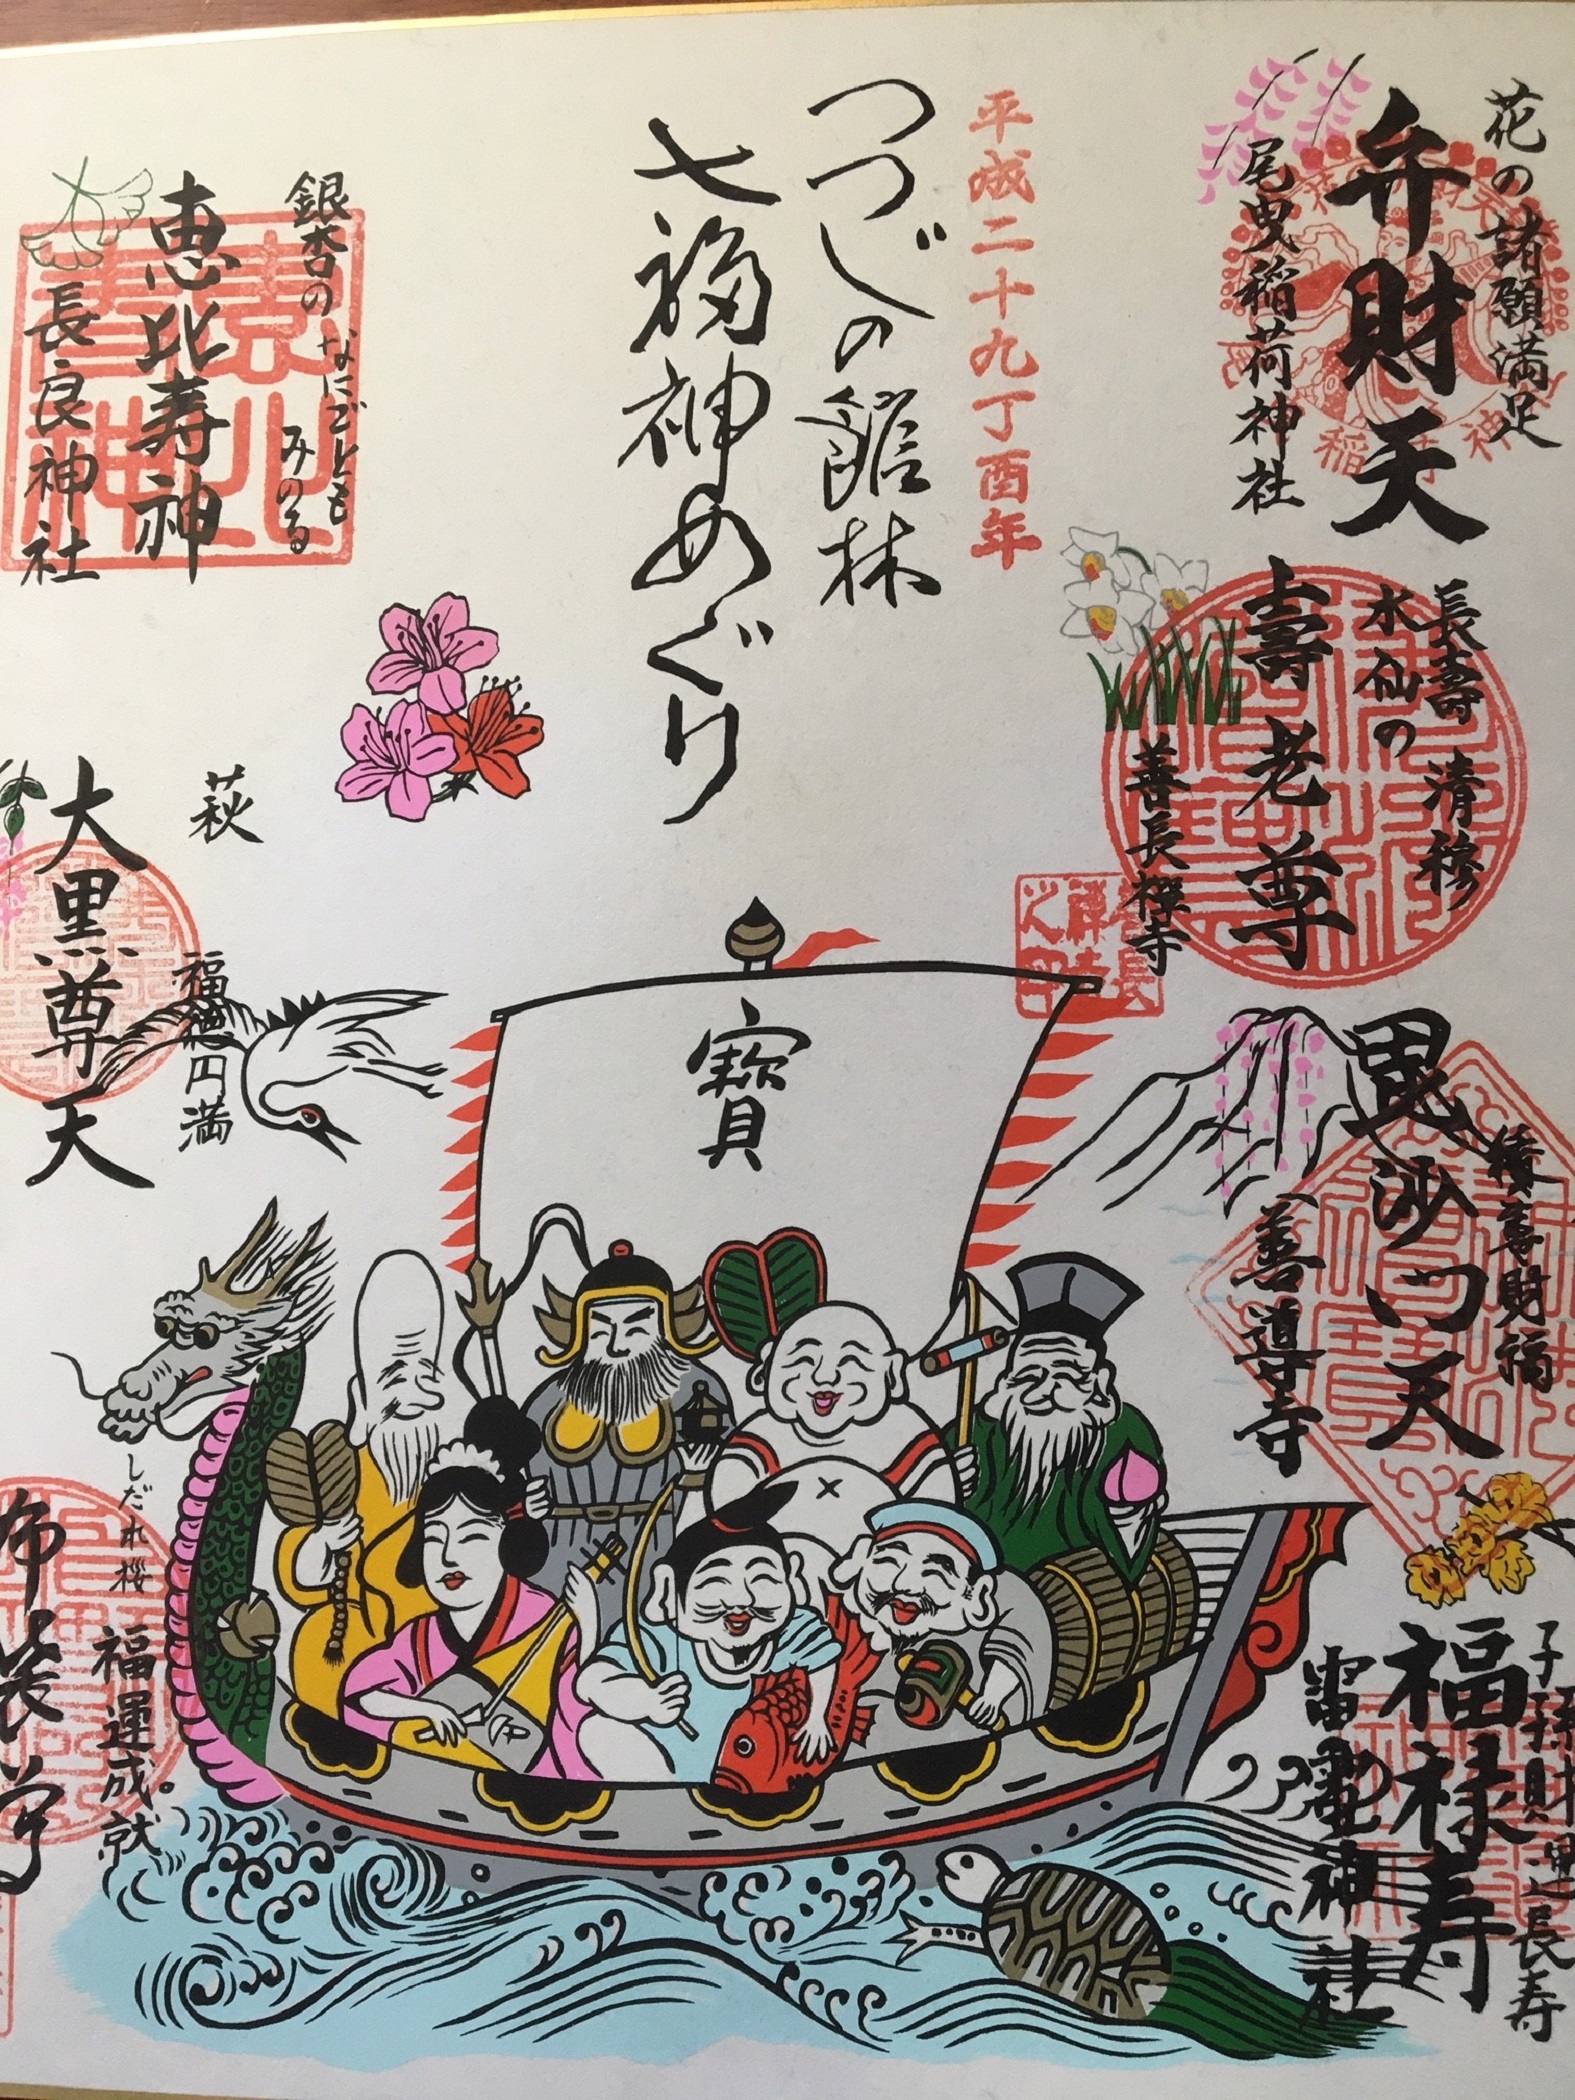 花の諸願満足
弁財天
尾曳稲荷神社
長壽 清穆
水仙の
壽老尊
善長禅寺
積善財福
毘沙門天
善導寺
福禄寿
雷電神社
平成二十九丁酉年
つつじの館林
七福神めぐり
寶
銀杏の
なにごとも
みのる
恵比寿神
長良神社
萩
福徳円満
大黒尊天
しだれ桜
福運成就。
布袋尊